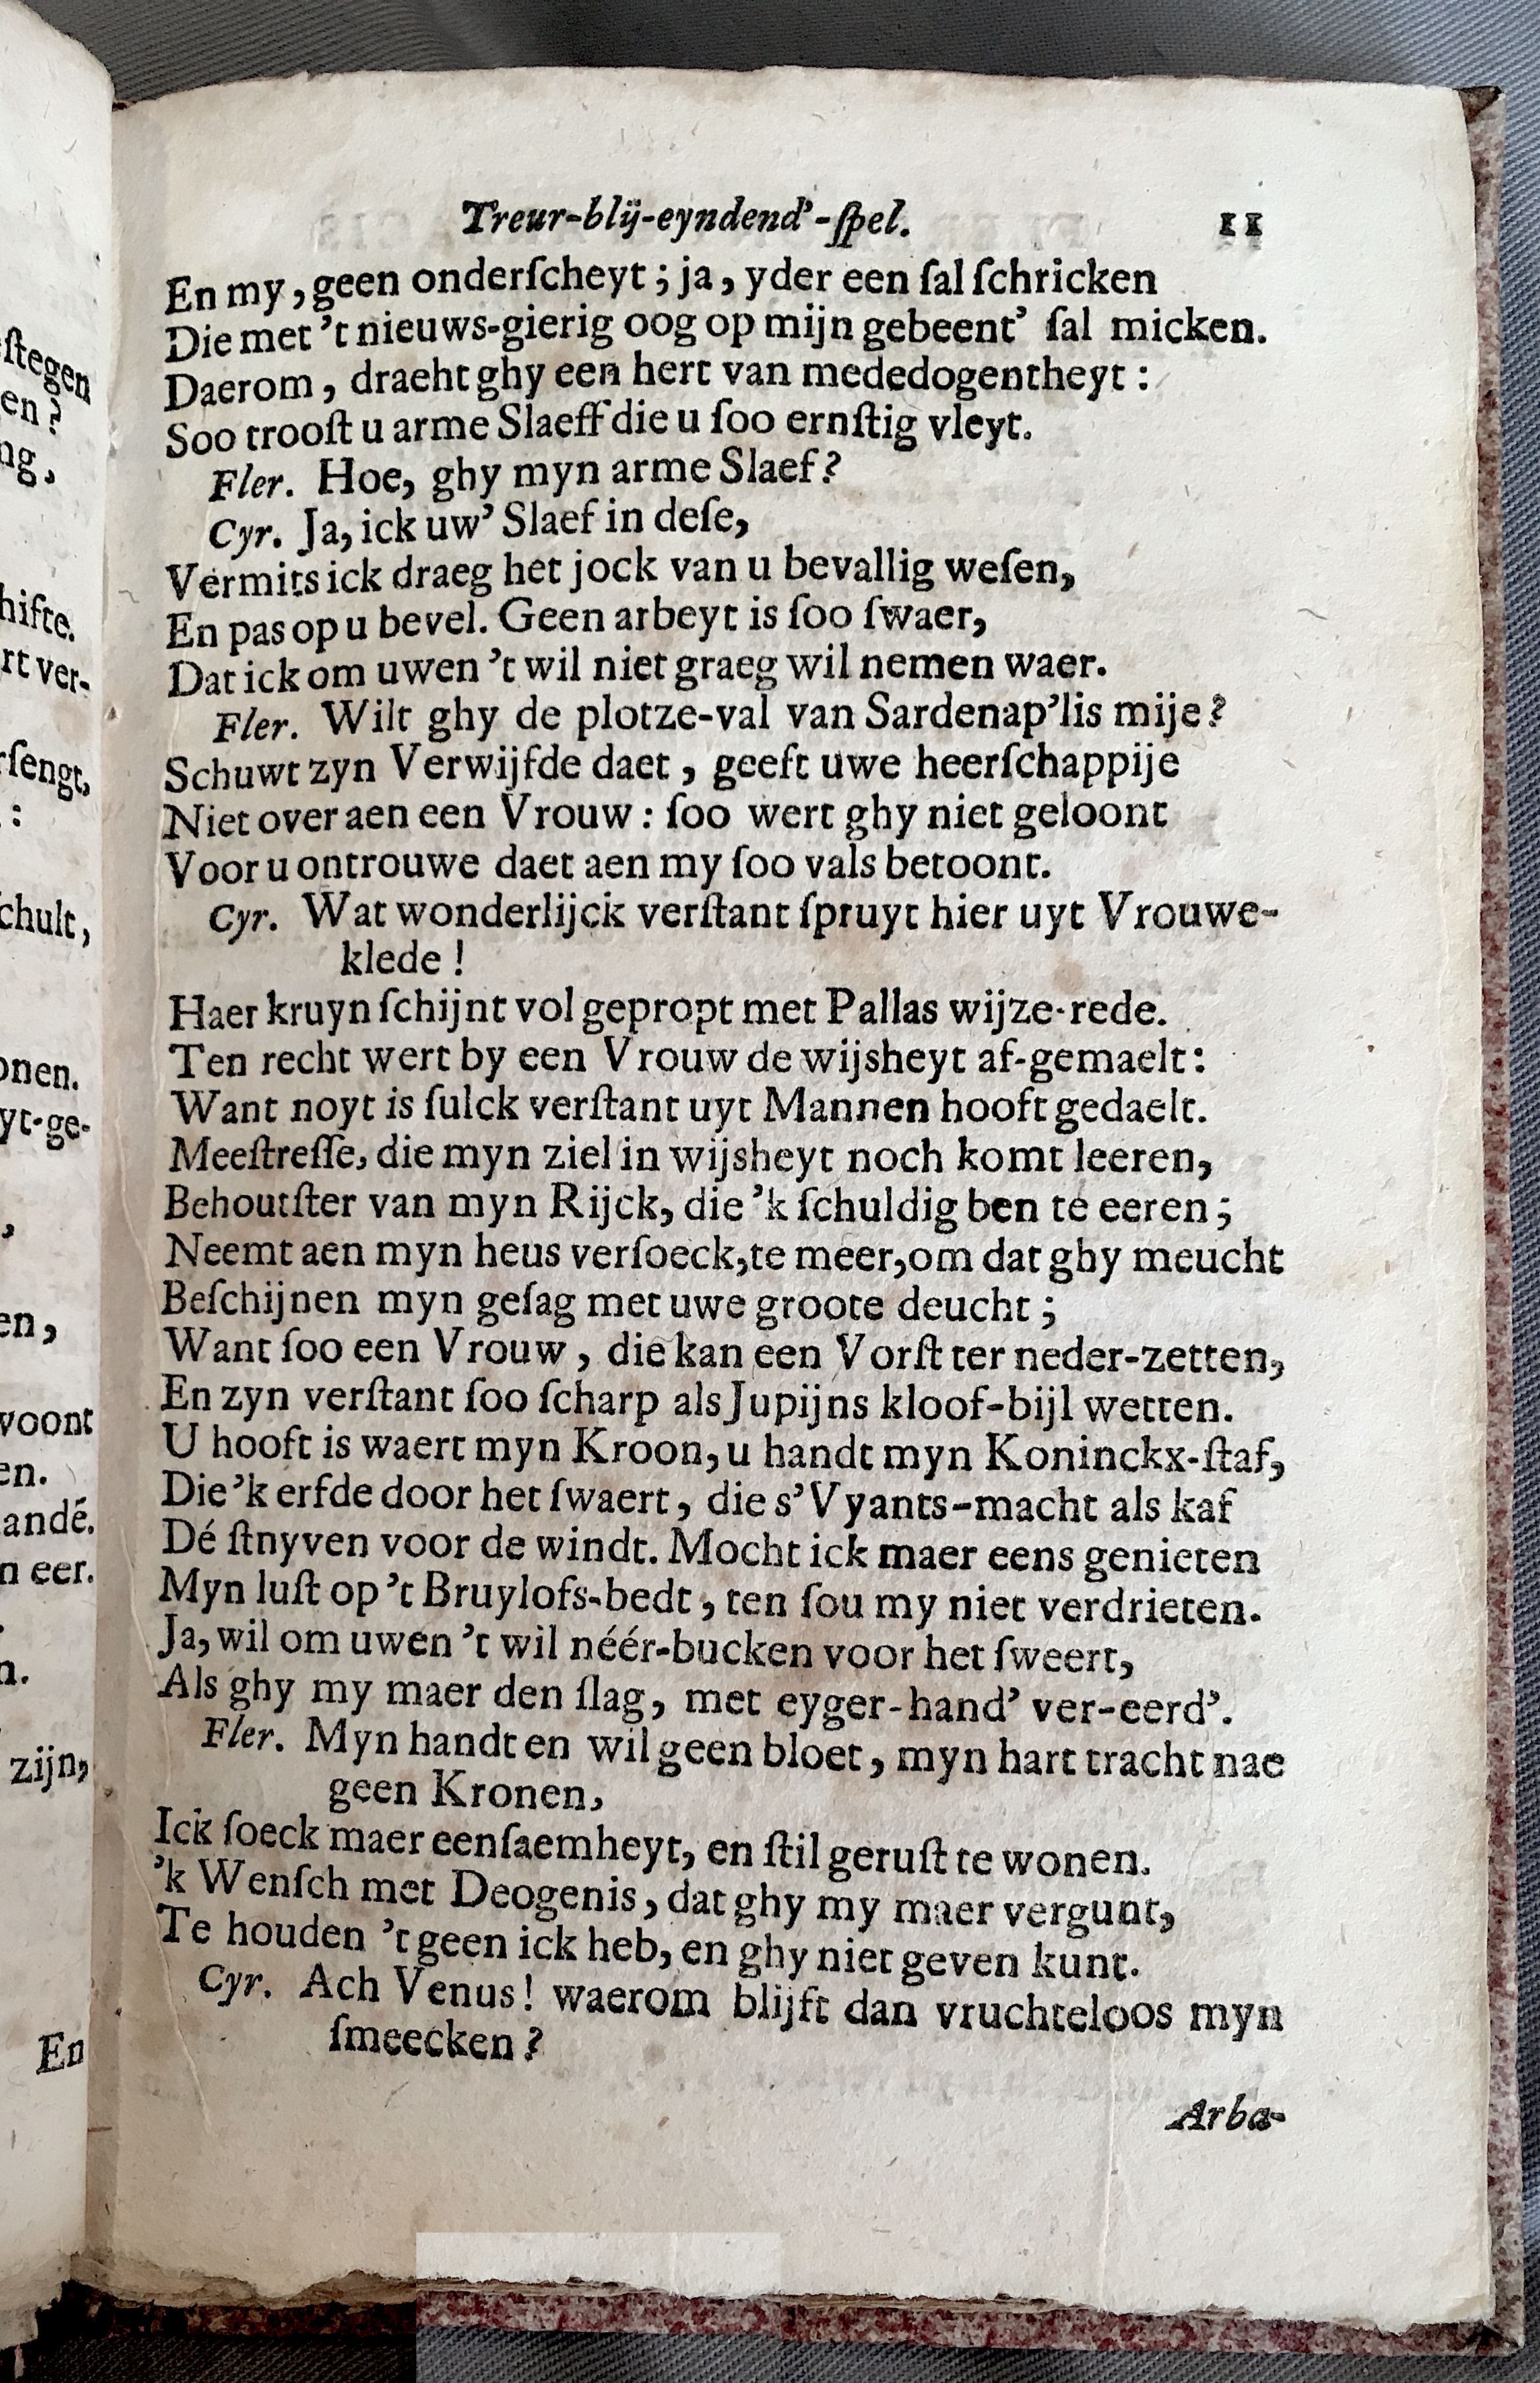 Treur-blij-eyndend'-ſpel. 11
En my, geen onderſcheyt; ja, yder een ſal ſchricken
Die met 't nieuws-gierig oog op mijn gebeent' ſal micken.
Daerom, draeht ghy een hert van mededogentheyt:
Soo trooſt u arme Slaeff die u ſoo ernſtig vleyt.
Fler. Hoe, ghy myn arme Slaef?
Cyr. Ja, ick uw' Slaef in deſe,
Vermits ick draeg het jock van u bevallig weſen,
En pas op u bevel. Geen arbeyt is ſoo ſwaer,
Dat ick om uwen 't wil niet graeg wil nemen waer.
Fler. Wilt ghy de plotze-val van Sardenap'lis mije?
Schuwt zyn Verwijfde daet, geeft uwe heerſchappije
Niet over aen een Vrouw: ſoo wert ghy niet geloont
Voor u ontrouwe daet aen my ſoo vals betoont.
Cyr. Wat wonderlijck verſtant ſpruyt hier uyt Vrouwe-
klede!
Haer kruyn ſchijnt vol gepropt met Pallas wijze-rede.
Ten recht wert by een Vrouw de wijsheyt af-gemaelt:
Want noyt is ſulck verſtant uyt Mannen hooft gedaelt.
Meeſtreſſe, die myn ziel in wijsheyt noch komt leeren,
Behoutſter van myn Rijck, die 'k ſchuldig ben te eeren;
Neemt aen myn heus verſoeck, te meer, om dat ghy meucht
Beſchijnen myn geſag met uwe groote deucht;
Want ſoo een Vrouw, die kan een Vorſt ter neder-zetten,
En zyn verſtant ſoo ſcharp als Jupijns kloof-bijl wetten.
U hooft is waert myn Kroon, u handt myn Koninckx-ſtaf,
Die 'k erfde door het ſwaert, die s'Vyants-macht als kaf
Dé ſtnyven voor de windt. Mocht ick maer eens genieten
Myn luſt op 't Bruylofs-bedt, ten ſou my niet verdrieten.
Ja, wil om uwen 't wil néér-bucken voor het ſweert,
Als ghy my maer den ſlag, met eyger-hand' ver-eerd'.
Fler. Myn handt en wil geen bloet, myn hart tracht nae
geen Kronen,
Ick ſoeck maer eenſaemheyt, en ſtil geruſt te wonen.
'k Wenſch met Deogenis, dat ghy my maer vergunt,
Te houden 't geen ick heb, en ghy niet geven kunt.
Cyr. Ach Venus! waerom blijft dan vruchteloos myn
ſmeecken?
Arba-